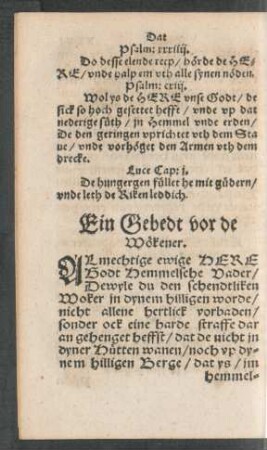 Dat
Psalm: xxxiiij.
Do desse elende reep / hörde de HE-
RE / vnde halp em vth alle synen nöden.
Psalm: cxiij.
Wol ys de HERE vnse Godt / de
sick so hoch gesettet hefft / vnde vp dat
nederige süth / jn Hemmel vnde erden /
De den geringen vprichtet vth dem Sta
ue / vnde vorhöget den Armen vth dem
drecke.
Luce Cap: j.
De hungergen füllet he mit güdern /
vnde leth de Riken leddich.
Ein Gebedt vor de
Wökener.
ALmechtige ewige HERE
Godt Hemmelsche Vader /
Dewyle du den schendtliken
Woker in dynem hilligen worde /
nicht allene hertlick vorbaden /
sonder ock eine harde straffe dar
an gehenget heffst / dat de nicht jn
dyner Hütten wanen / noch vp dy-
nem hilligen Berge / dat ys / jm
hemmel-